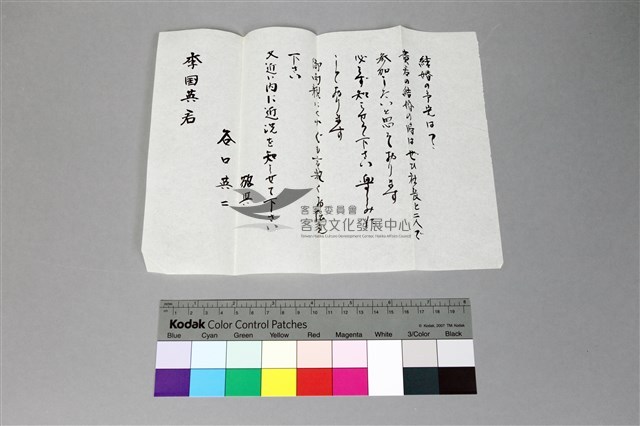 結婚の予定は?
貴方の結婚の時はぜひ社長と二人で
参加したいと思っております
必らず知らせて下さい 楽しみに
しております
御両親にくれぐれも宜敷く御伝え
下さい
又近い内に近況を知らせて下さい
敬具
谷口英二
李国英君
客家委員會
客家文化發展中心
Taiwan Hakka Culture Development Center, Hakka Affairs Council
Kodak Color Control Patches
© Kodak, 2007 TM: Kodak
Blue Cyan Green Yellow Red Magenta White 3/Color Black